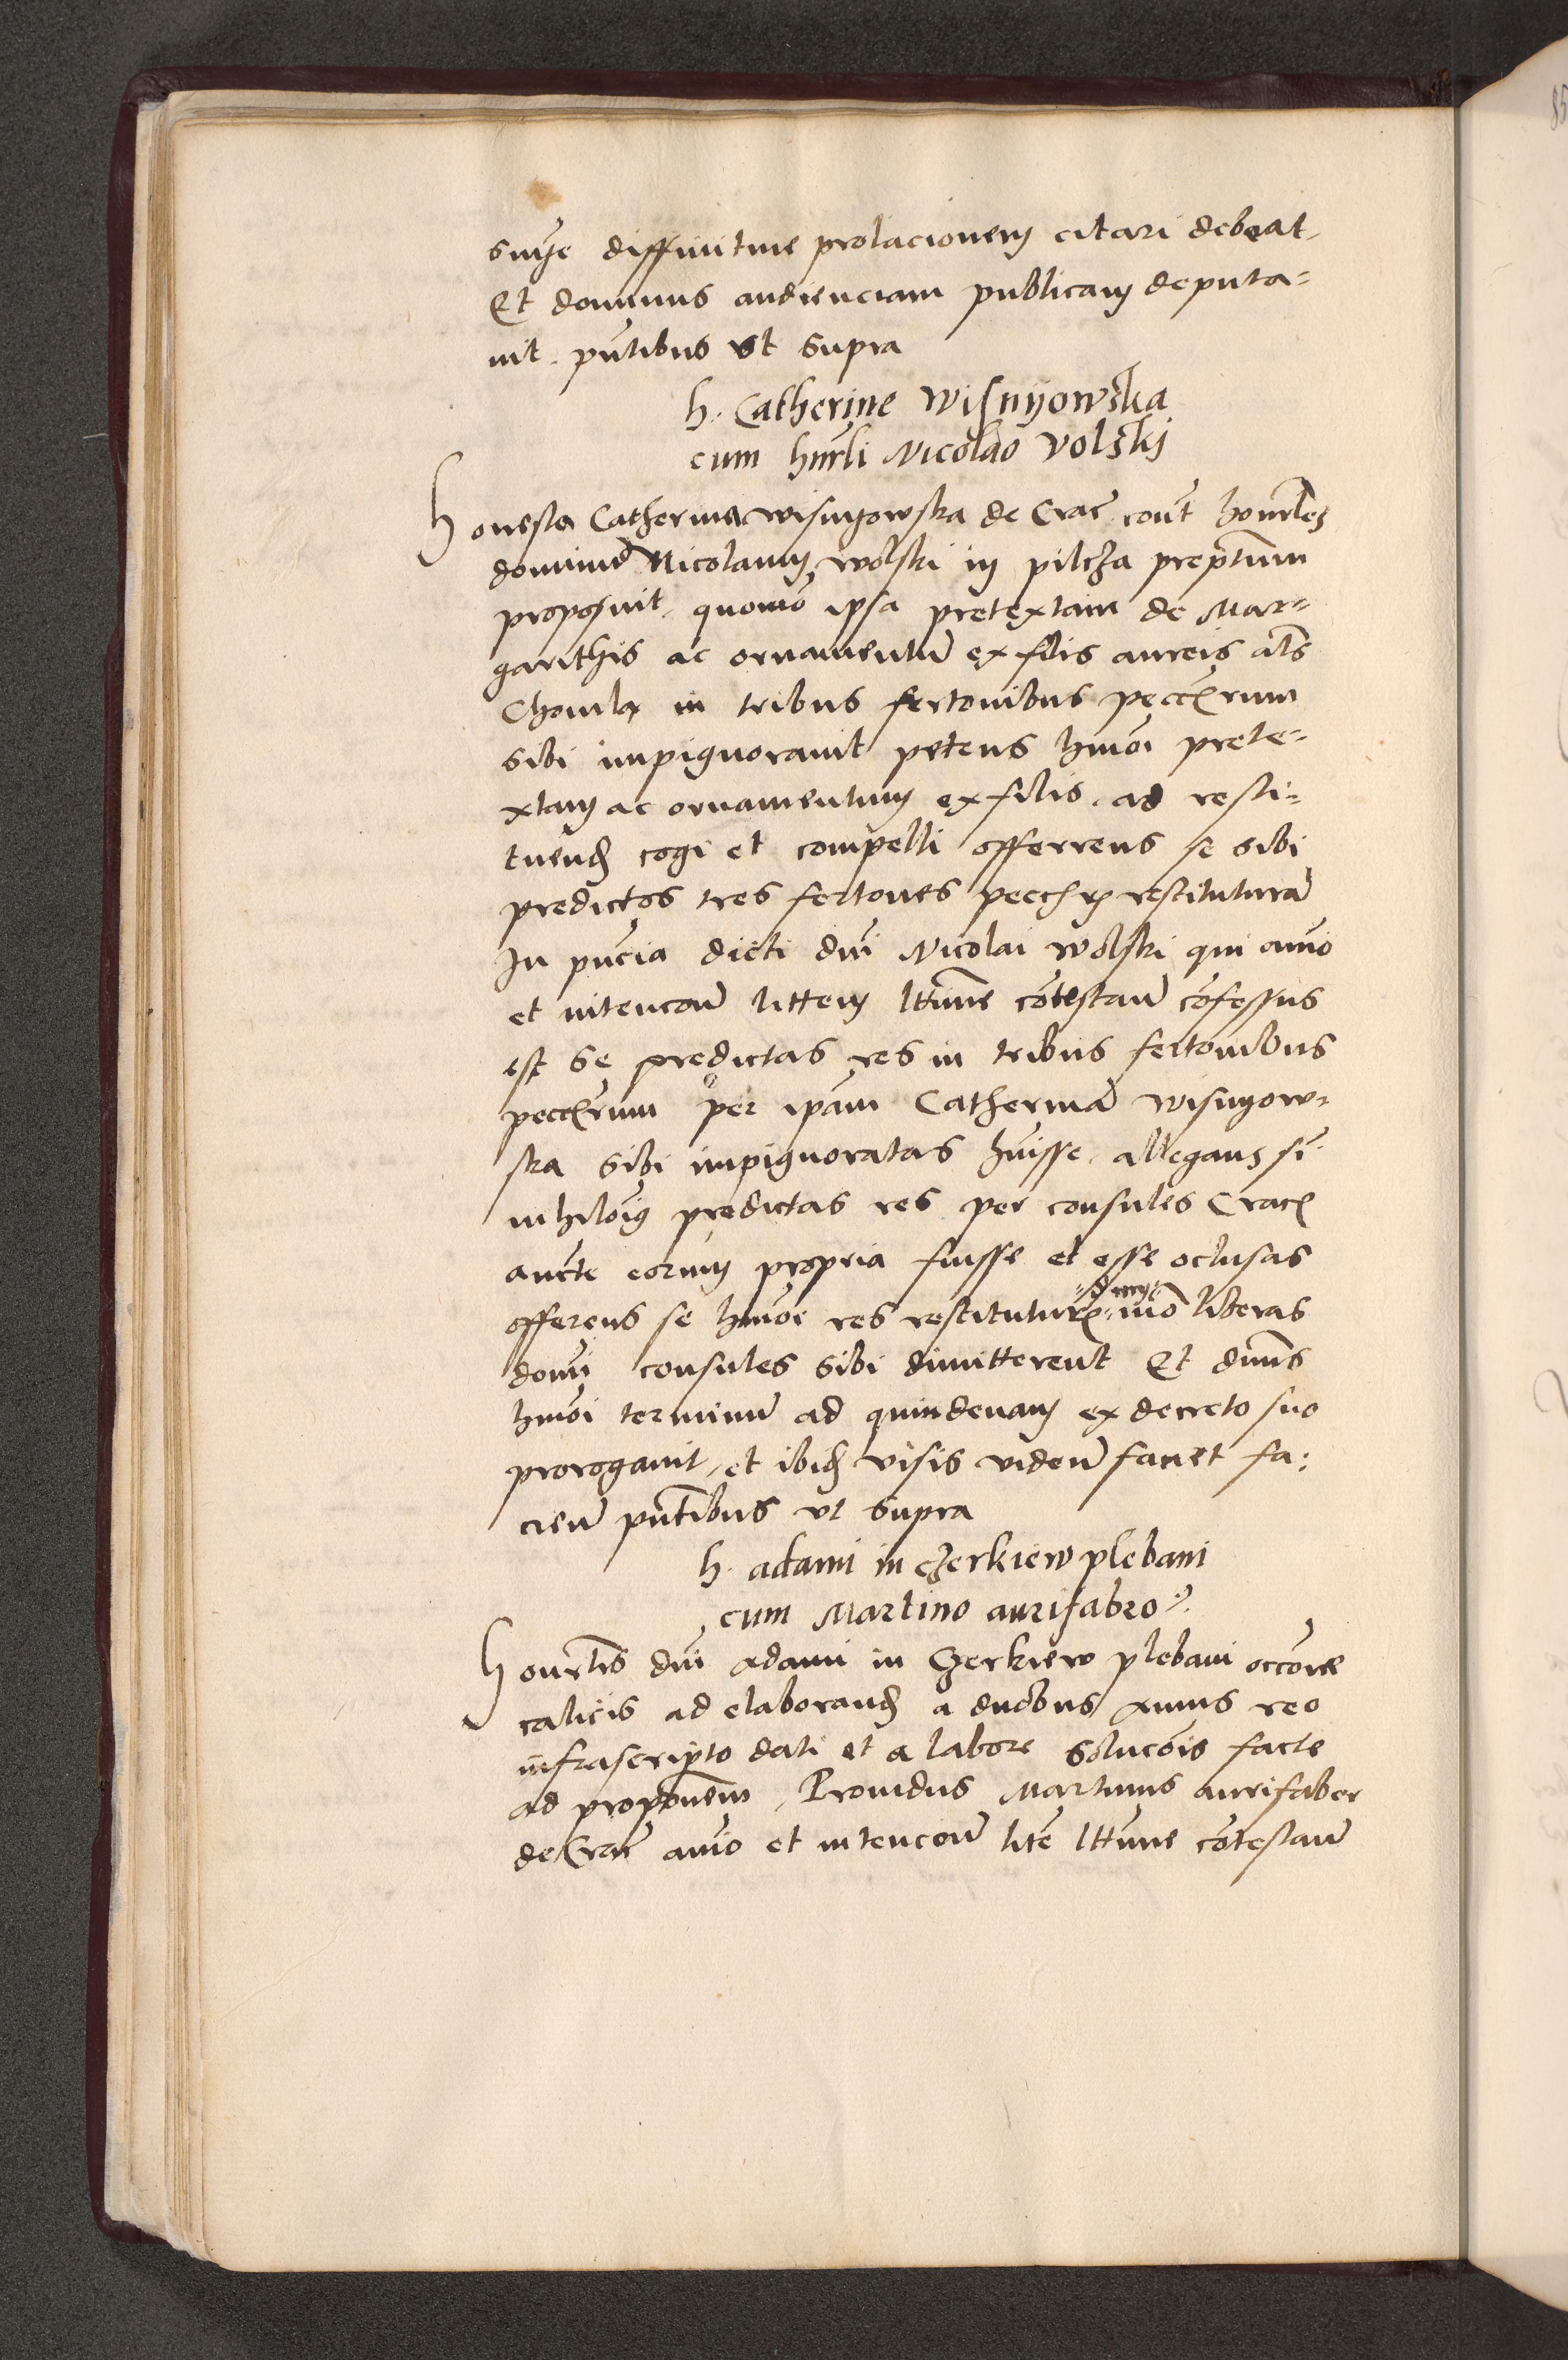 snıẏe diffinitive prolacionem citari debeat.
Et dominus audienciam publicam deputa=
vit. pn̄tibus vt supra
h. Catherine Wisnyowska
cum hnrli Nicolao Volski
Honesta Catherina wisnyowska de Crac. cont honrlem
dominū Nicolaum wolski in pilcza preptum
proposuit. quomō ipsa pretextam de Mar=
garithis ac ornamentū ex filis aureis als
Chomla in tribus fertonibus pecc̄rum
sibi impignoravit petens hmōi prete=
xtam ac ornamentum ex filis. ad resti=
tuend cogi et compelli offerrens se sibi
predictos tres fertones pecc̄r restituturā
In pn̄cia dicti dn̄i Nicolai wolski qui anīo
et intencōn̄ littem lttime cōtestan̄ cōfessus
est se predictas res in tribus fertonibus
pecc̄rum per ipām Catherinā wisnyow=
ska sibi impignoratas hūisse. allegans sī
nihilōig predictas res per consules Crac
aucte eorum propria fuisse et esse oclusas
offerens se hmōi res restitutur mō liberas
domi consules sibi dimitterent Et dnūs
hmōi terminū ad quindenam ex decreto suo
prorogavit, et ibid visis viden̄ faciet fa=
cien̄ pn̄tibus vt supra
h. adami in czerkiew plebani
cum Martino aurifabro
Honrlis dn̄i adami in Czerkiew plebani occōne
calicis ad elaborand a duobus annis reo
infrascripto dati et a labore solucōis facte
ad proponēm, Providus Martinus aurifaber
de Crac anīo et intencōn̄ litē lttime cōtestan̄
85